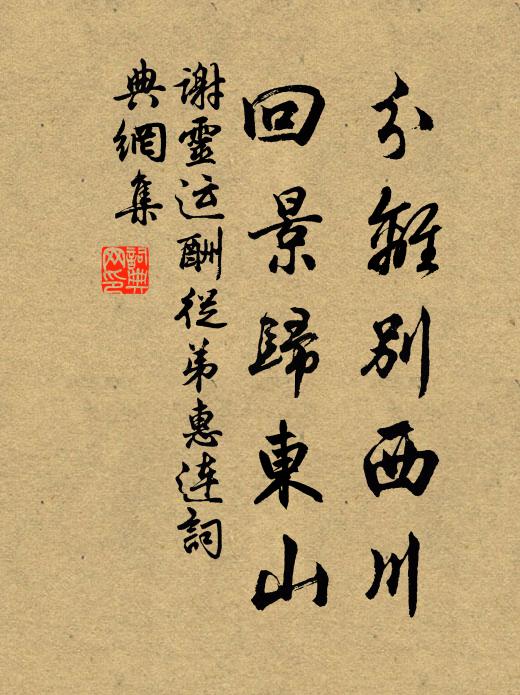 分離別西川
回景歸東山
謝靈运酬從弟惠连詞
典網集
詞典
网印